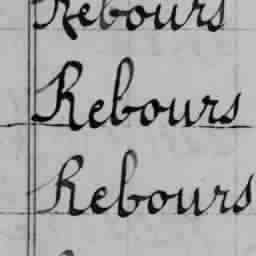 Rebours
Rebours
Rebours